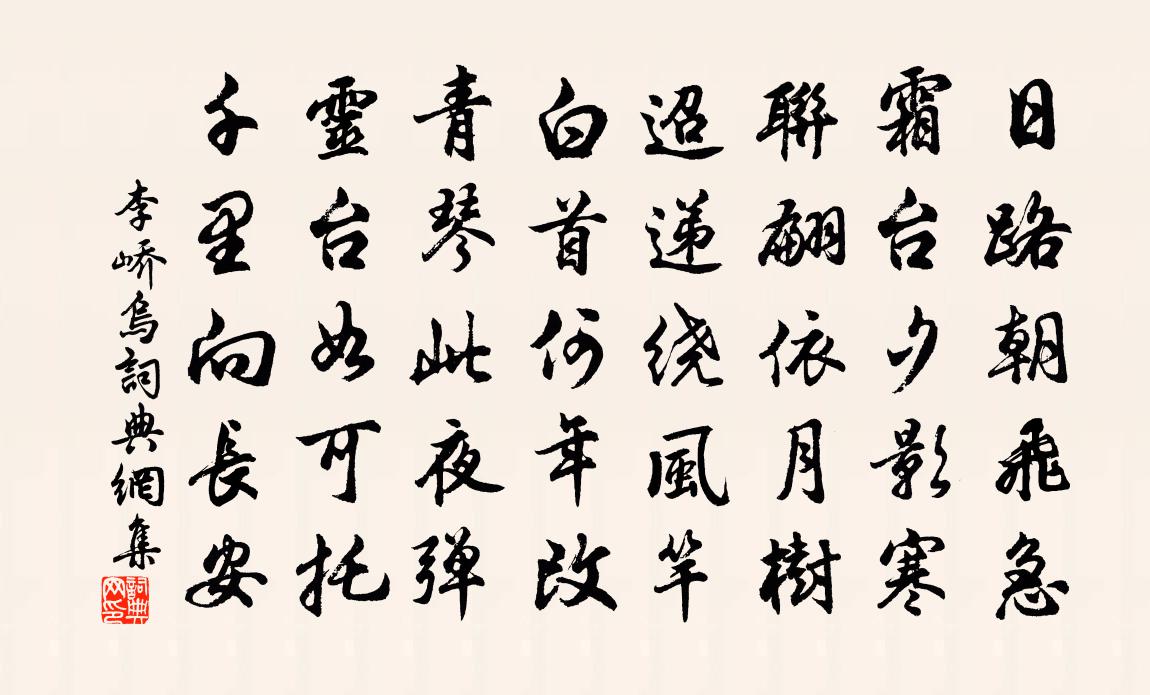 日路朝飛急
霜台夕影寒
聯翩依月樹
迢递绕風竿
白首何年改
青琴此夜弹
靈台如可托
千里向長安
李嶠烏詞典網集
詞典网印